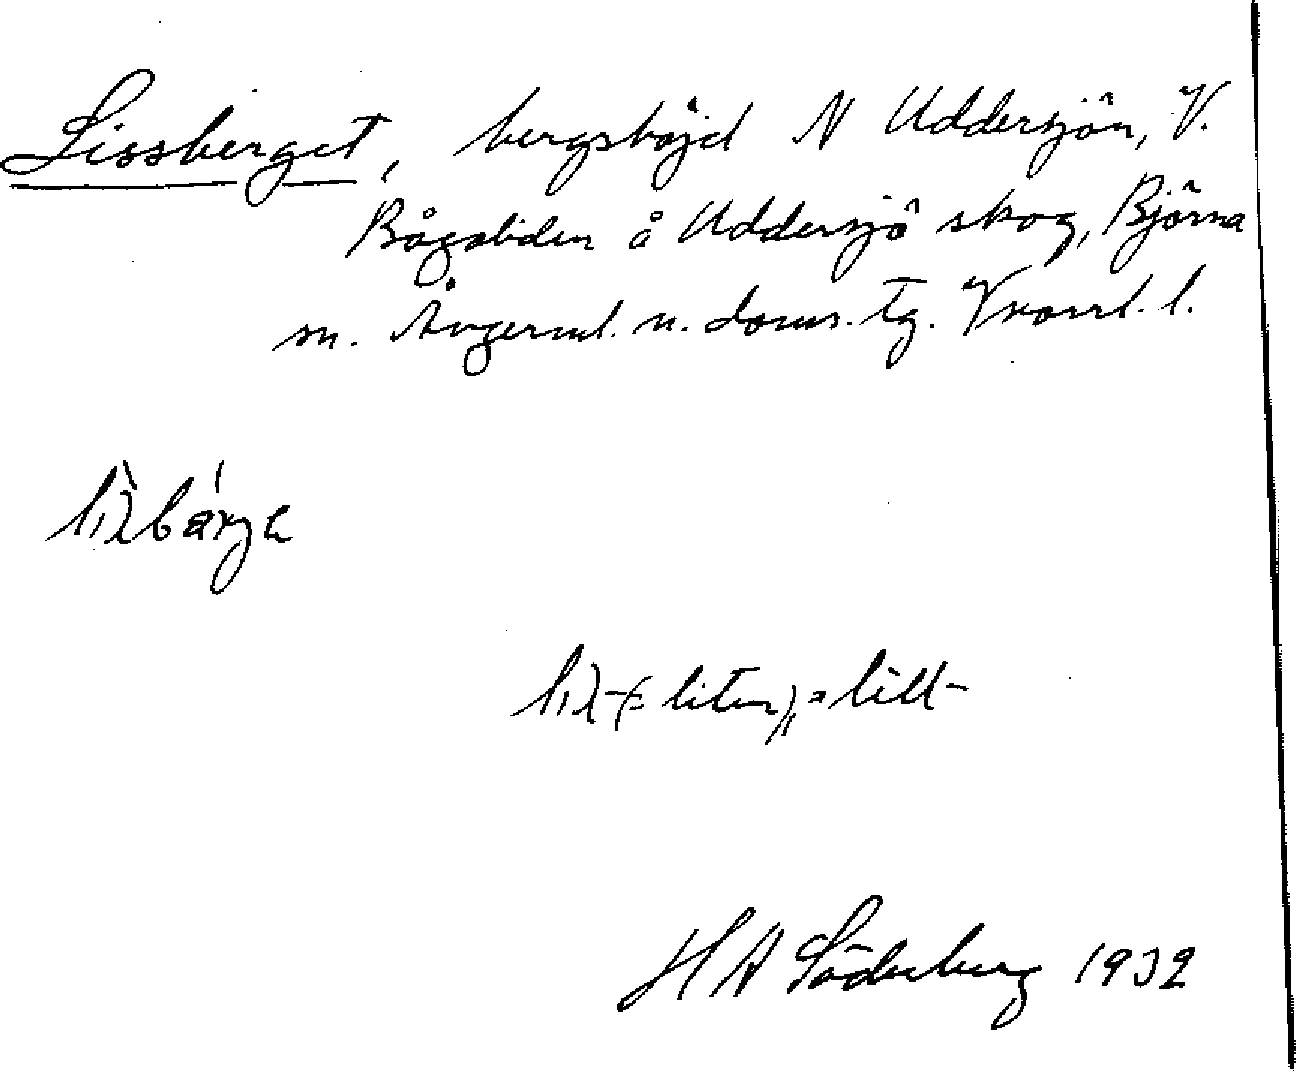 Lissberget, bergshöjd N Uddersjön, V.
Bågaliden å Uddersjö skog, Björna
sn. Ångerml. n. doms. tg. Vnorrl. l.
lìlbárgɛ
lil- (= liten), = lill-
H A Söderberg 1932